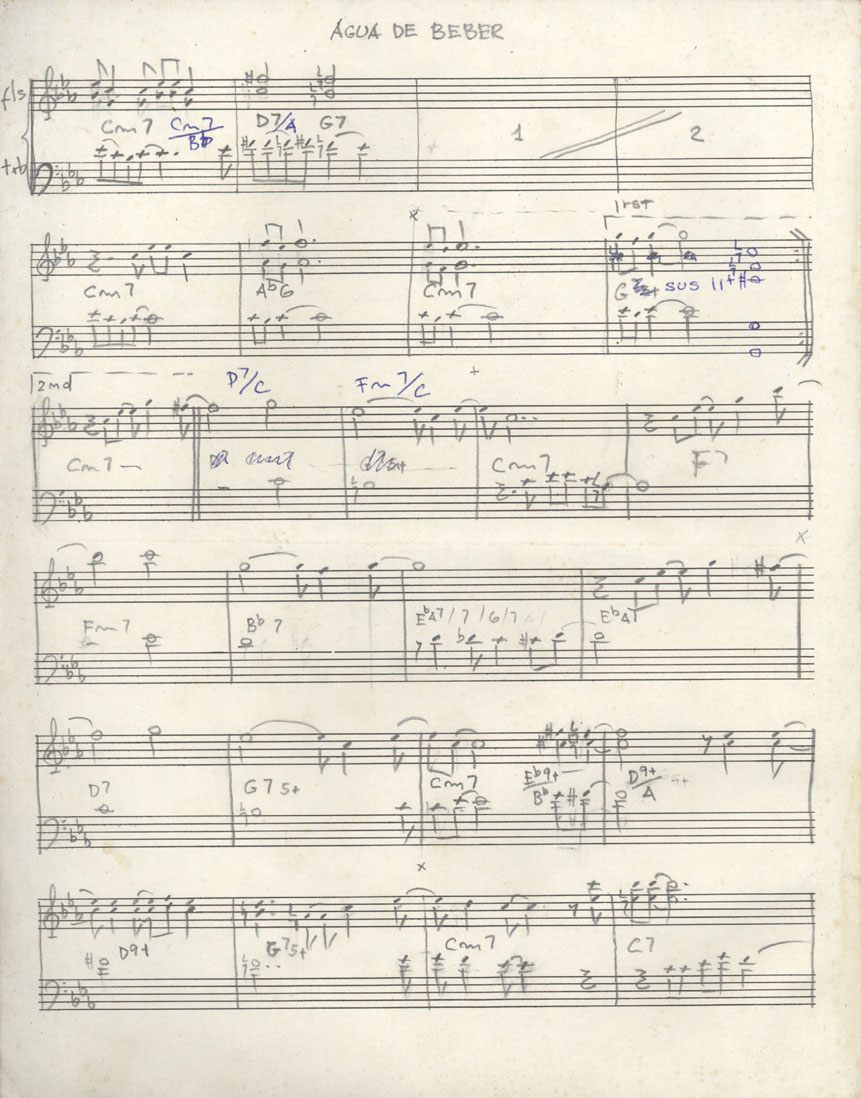 ÁGUA DE BEBER
fls
Cm7 Cm7/Bb D7/A G7 1 2
txb
x 1rst
Cm7 Ab6 Cm7 G7 sus 11+
2nd D7/C Fm7/C +
Cm7 — Cm7 F7
x
Fm7 Bb7 Eb47/7/6/7 Eb47
D7 G7 5+ Cm7 Eb9+/Bb D9+/A
x
D9+ G7 5+ Cm7 C7